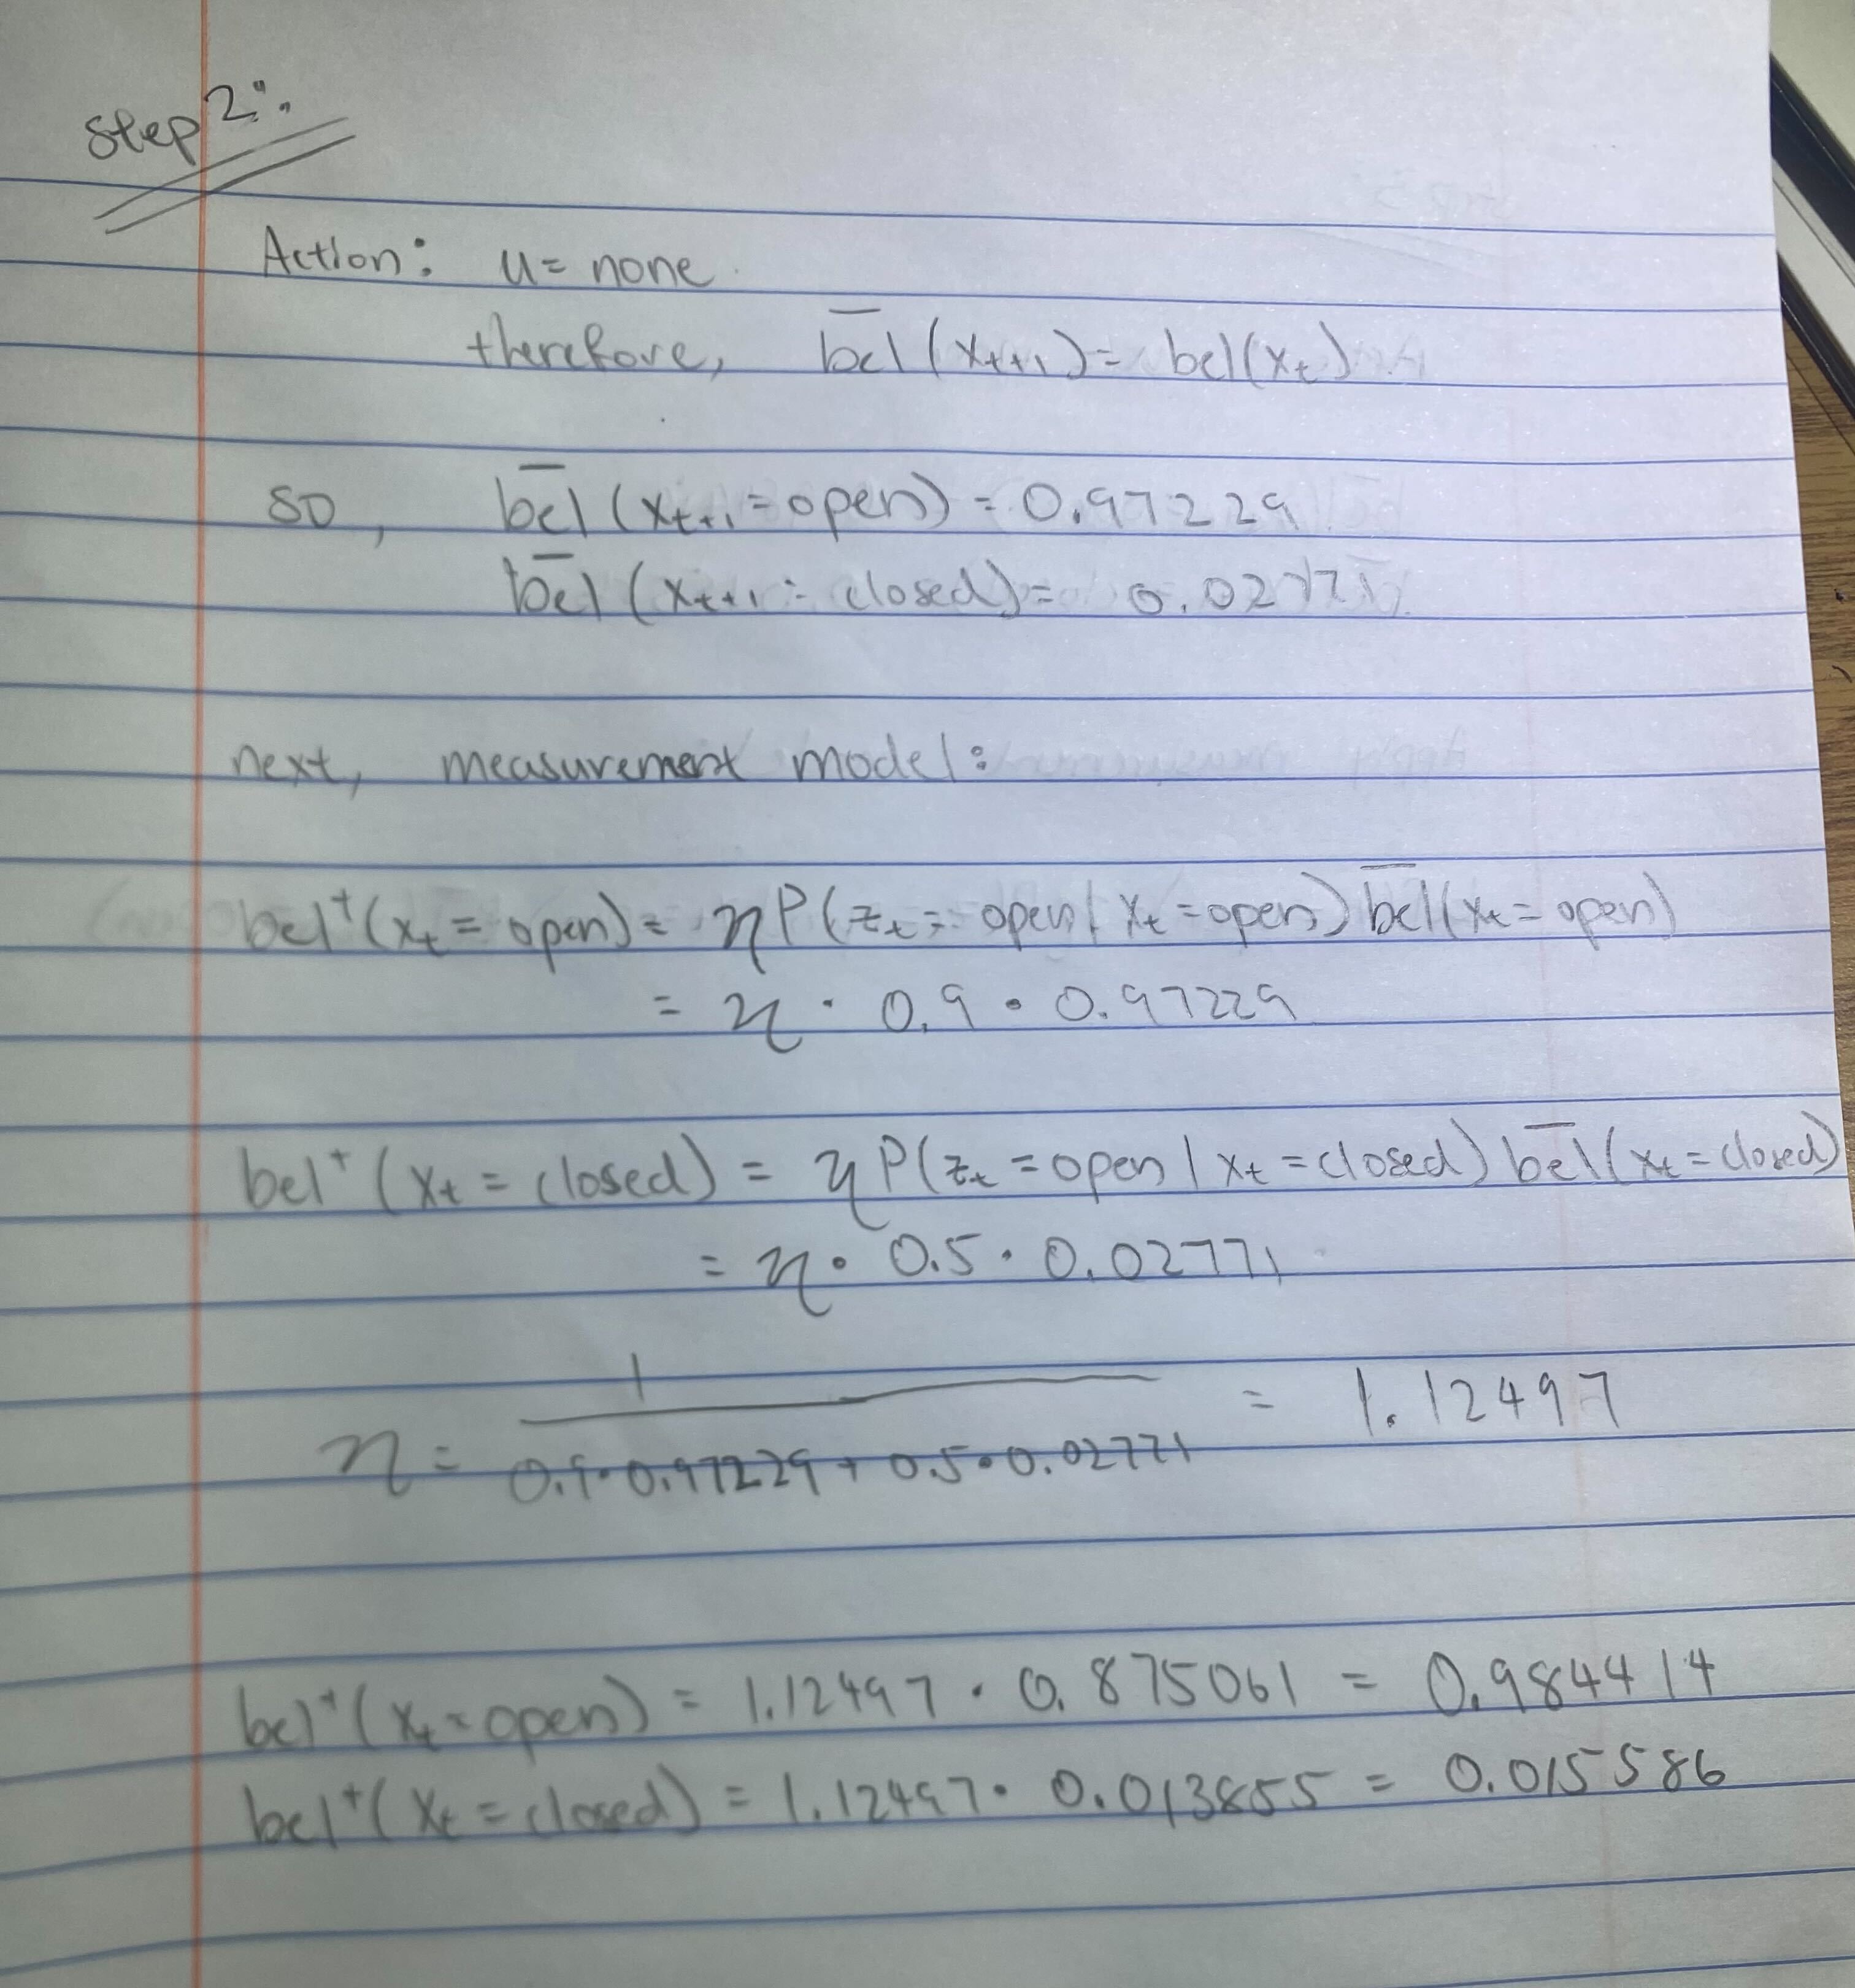 Step 2:
Action: u = none.
therefore, b̅e̅l̅ (xₜ₊₁) = bel(xₜ)
so, b̅e̅l̅ (xₜ₊₁ = open) = 0.97229
b̅e̅l̅ (xₜ₊₁ = closed) = 0.02771
next, measurement model:
bel⁺(xₜ = open) = η P(zₜ = open | xₜ = open) b̅e̅l̅(xₜ = open)
= η · 0.9 · 0.97229
bel⁺(xₜ = closed) = η P(zₜ = open | xₜ = closed) b̅e̅l̅(xₜ = closed)
= η · 0.5 · 0.02771
1
η = = 1.12497
0.9·0.97229 + 0.5·0.02771
bel⁺(xₜ = open) = 1.12497 · 0.875061 = 0.984414
bel⁺(xₜ = closed) = 1.12497 · 0.013855 = 0.015586